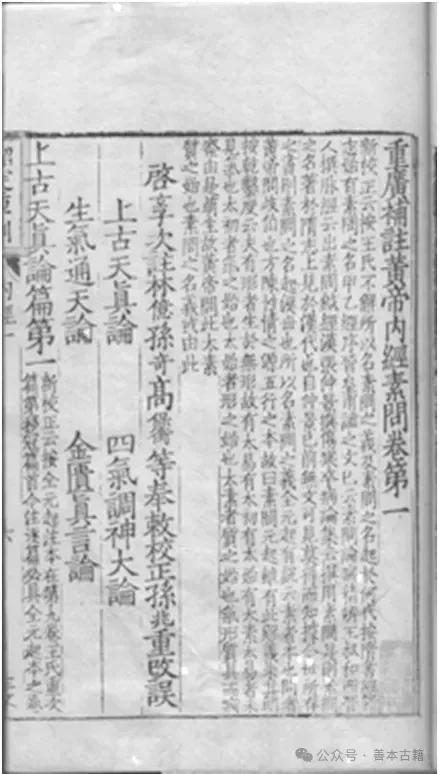 重廣補註黃帝內經素問卷第一
新校正云按王氏不解所以名素問之義及素問之名起於何代按隋書經籍
志始有素問之名甲乙經序晉皇甫謐之文已云素問論病精辨王叔和西晉
人撰脉經云出素問鍼經漢張仲景撰傷寒卒病論集云撰用素問是則素問
之名著於隋志上見於漢代也自仲景已前無文可見莫得而知據今世所存
之書則素問之名起漢世也所以名素問之義全元起有說云素者本也問者
黃帝問岐伯也方陳性情之源五行之本故曰素問元起雖有此解義未甚明
按乾鑿度云夫有形者生於無形故有太易有太初有太始有太素太易者未
見氣也太初者氣之始也太始者形之始也太素者質之始也氣形質具而痾
瘵由是萌生故黃帝問此太素
質之始也素問之名義或由此
啓玄次註林億孫奇高保衡等奉敕校正孫兆重改誤
上古天眞論 四氣調神大論
生氣通天論 金匱眞言論
上古天眞論篇第一
新校正云按全元起注本在第九卷王氏重次
篇第移冠篇首今注逐篇必具全元起本之卷
內經一
公众号 · 善本古籍